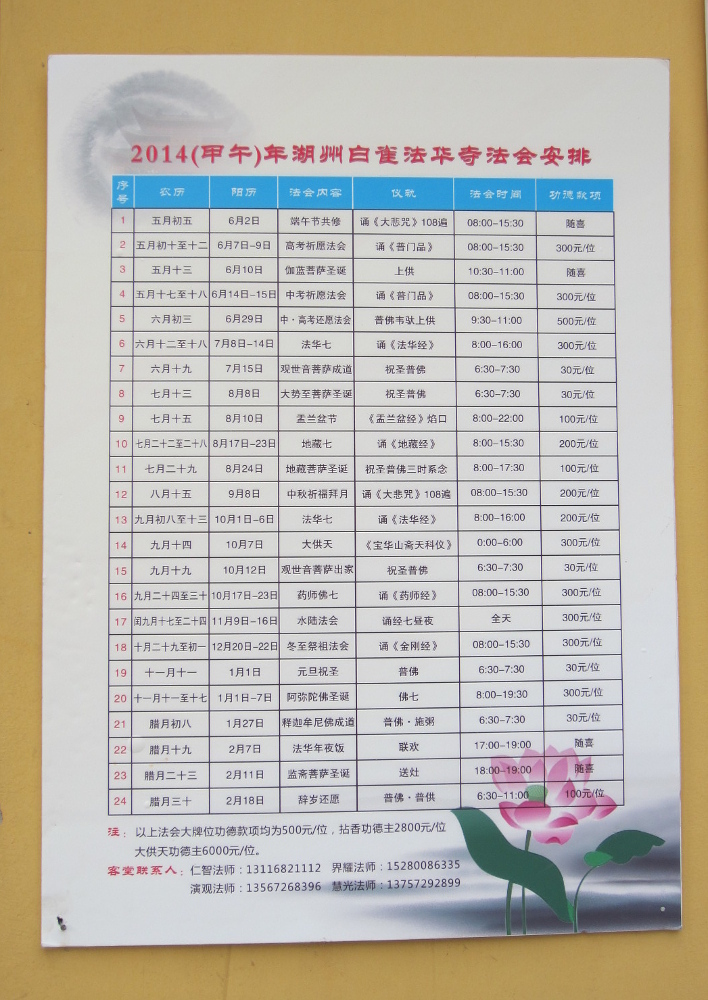 2014(甲午)年湖州白雀法华寺法会安排
序号 农历 阳历 法会内容 仪轨 法会时间 功德款项
1 五月初五 6月2日 端午节共修 诵《大悲咒》108遍 08:00-15:30 随喜
2 五月初十至十二 6月7日-9日 高考祈愿法会 诵《普门品》 08:00-15:30 300元/位
3 五月十三 6月10日 伽蓝菩萨圣诞 上供 10:30-11:00 随喜
4 五月十七至十八 6月14日-15日 中考祈愿法会 诵《普门品》 08:00-15:30 300元/位
5 六月初三 6月29日 中·高考还愿法会 普佛韦驮上供 9:30-11:00 500元/位
6 六月十二至十八 7月8日-14日 法华七 诵《法华经》 8:00-16:00 300元/位
7 六月十九 7月15日 观世音菩萨成道 祝圣普佛 6:30-7:30 30元/位
8 七月十三 8月8日 大势至菩萨圣诞 祝圣普佛 6:30-7:30 30元/位
9 七月十五 8月10日 盂兰盆节 《盂兰盆经》焰口 8:00-22:00 100元/位
10 七月二十二至二十八 8月17日-23日 地藏七 诵《地藏经》 8:00-15:30 200元/位
11 七月二十九 8月24日 地藏菩萨圣诞 祝圣普佛三时系念 8:00-17:30 100元/位
12 八月十五 9月8日 中秋祈福拜月 诵《大悲咒》108遍 08:00-15:30 200元/位
13 九月初八至十三 10月1日-6日 法华七 诵《法华经》 8:00-16:00 200元/位
14 九月十四 10月7日 大供天 《宝华山斋天科仪》 0:00-6:00 300元/位
15 九月十九 10月12日 观世音菩萨出家 祝圣普佛 6:30-7:30 30元/位
16 九月二十四至三十 10月17日-23日 药师佛七 诵《药师经》 08:00-15:30 300元/位
17 闰九月十七至二十四 11月9日-16日 水陆法会 诵经七昼夜 全天 300元/位
18 十月二十九至初一 12月20日-22日 冬至祭祖法会 诵《金刚经》 08:00-15:30 300元/位
19 十一月十一 1月1日 元旦祝圣 普佛 6:30-7:30 30元/位
20 十一月十一至十七 1月1日-7日 阿弥陀佛圣诞 佛七 8:00-19:30 300元/位
21 腊月初八 1月27日 释迦牟尼佛成道 普佛·施粥 6:30-7:30 30元/位
22 腊月十九 2月7日 法华年夜饭 联欢 17:00-19:00 随喜
23 腊月二十三 2月11日 监斋菩萨圣诞 送灶 18:00-19:00 随喜
24 腊月三十 2月18日 辞岁还愿 普佛·普供 6:30-11:00 100元/位
注：以上法会大牌位功德款项均为500元/位，拈香功德主2800元/位
大供天功德主6000元/位。
客堂联系人：仁智法师：13116821112 界耀法师：15280086335
演观法师：13567268396 慧光法师：13757292899